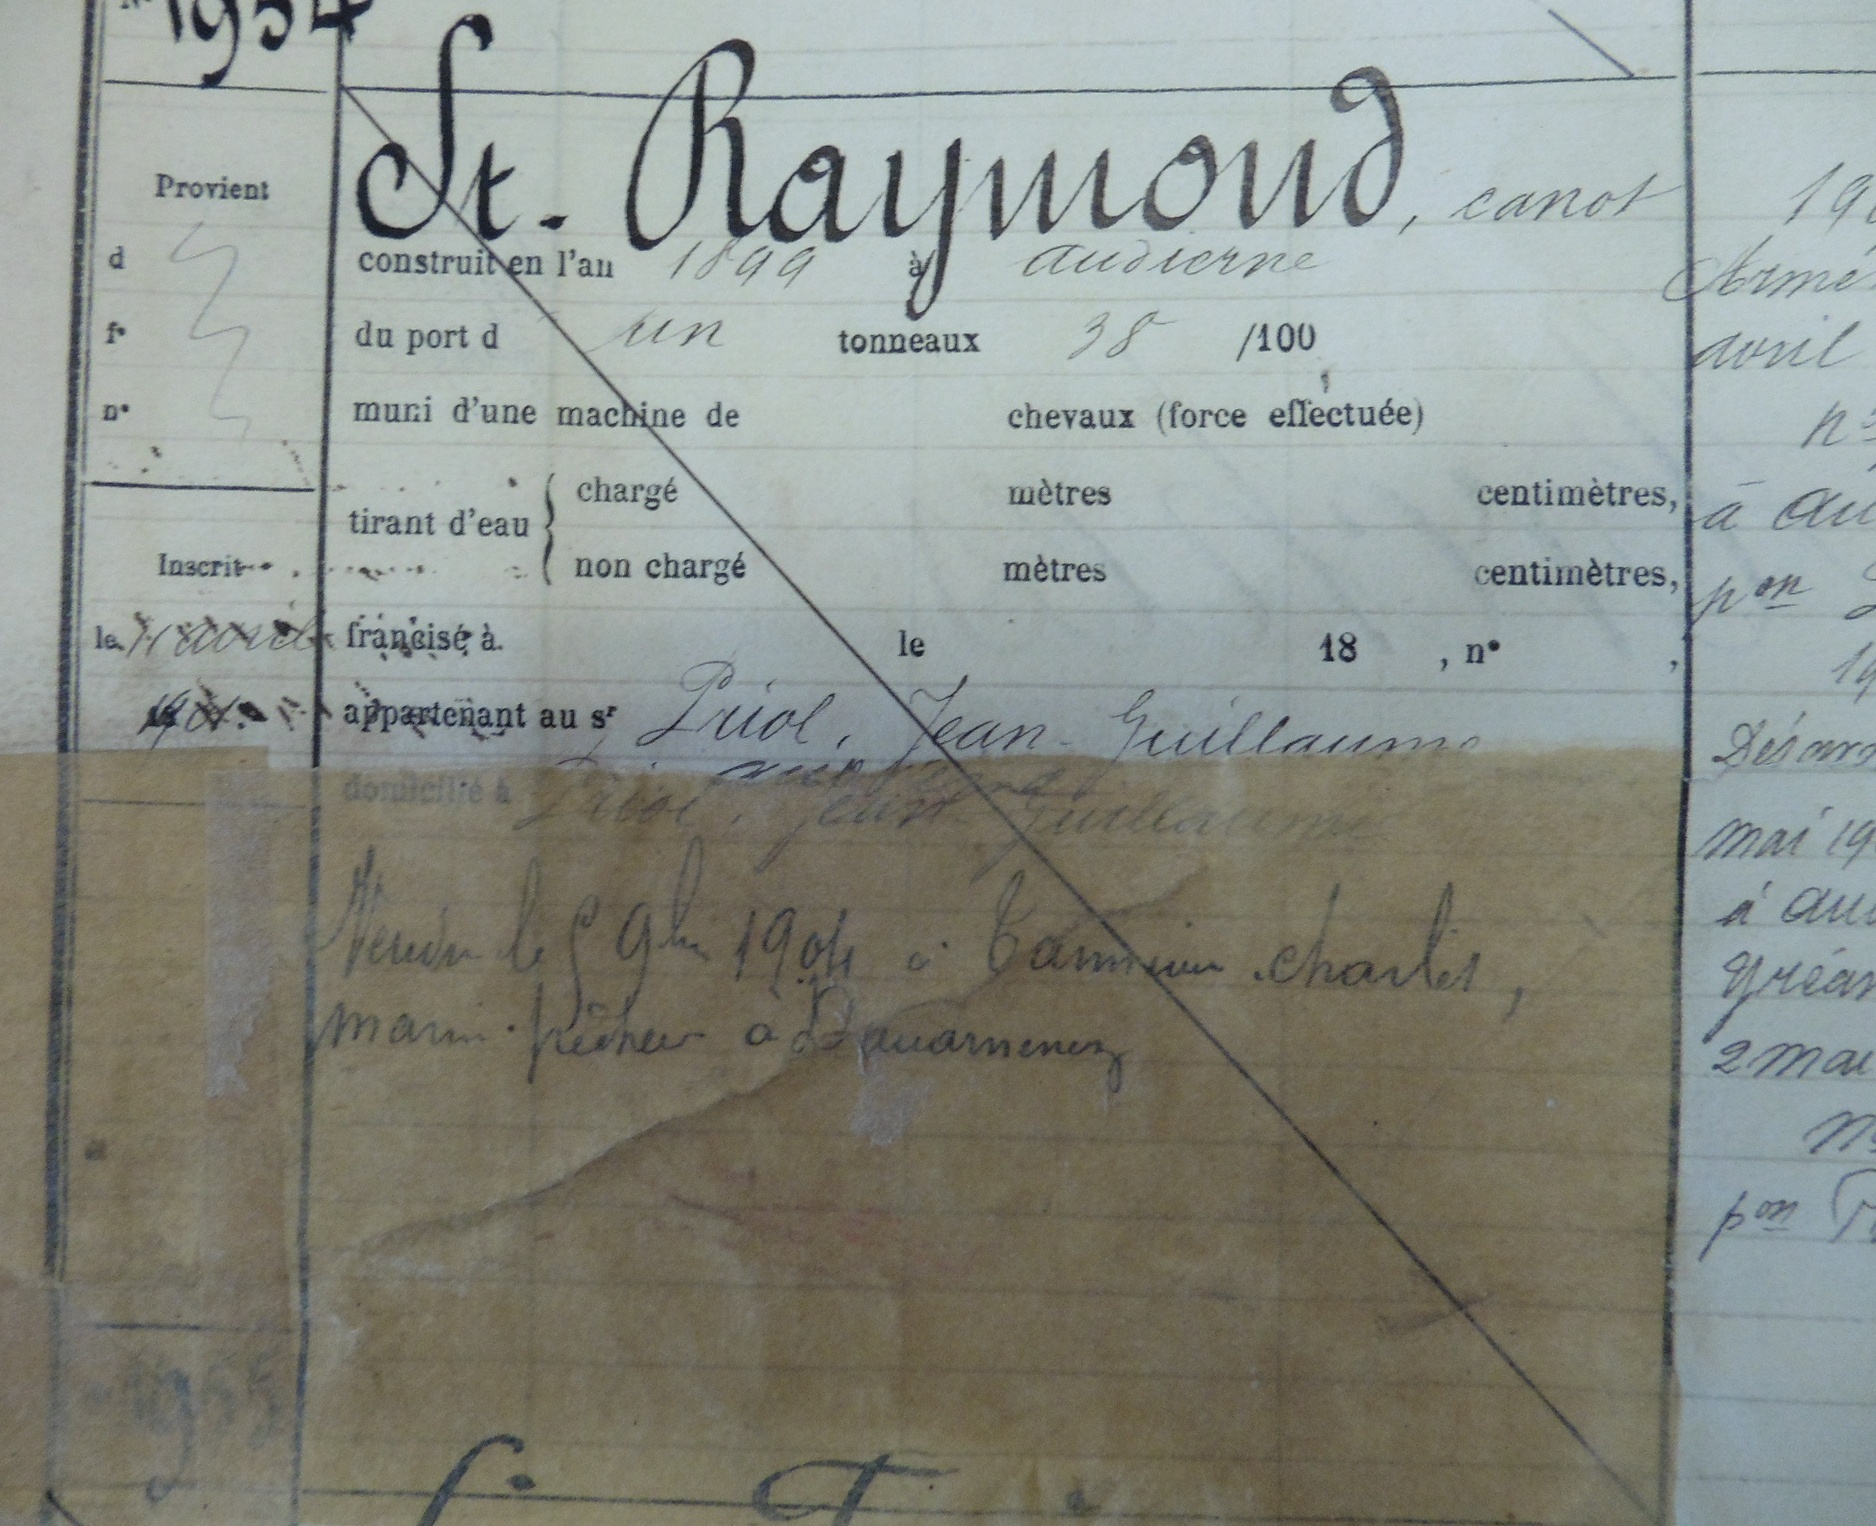 1954
St. Raymond, canot
Provient
d
construit en l'an 1899 à audierne
f°
du port d un tonneaux 38 /100
n°
muni d'une machine de chevaux (force effectuée)
tirant d'eau
chargé mètres centimètres,
non chargé mètres centimètres,
Inscrit
le 11 avril
1901.
francisé à le 18 , n° ,
appartenant au sr Priol, Jean-Guillaume
domicilié à
Priol, Jean Guillaume
Vendu le 5 9bre 1904 à charles,
marin-pêcheur à Douarnenez
1955
St
19
Armé
avril
n°
à au
pon
19
Désarm
mai 19
à au
2 mai
pon